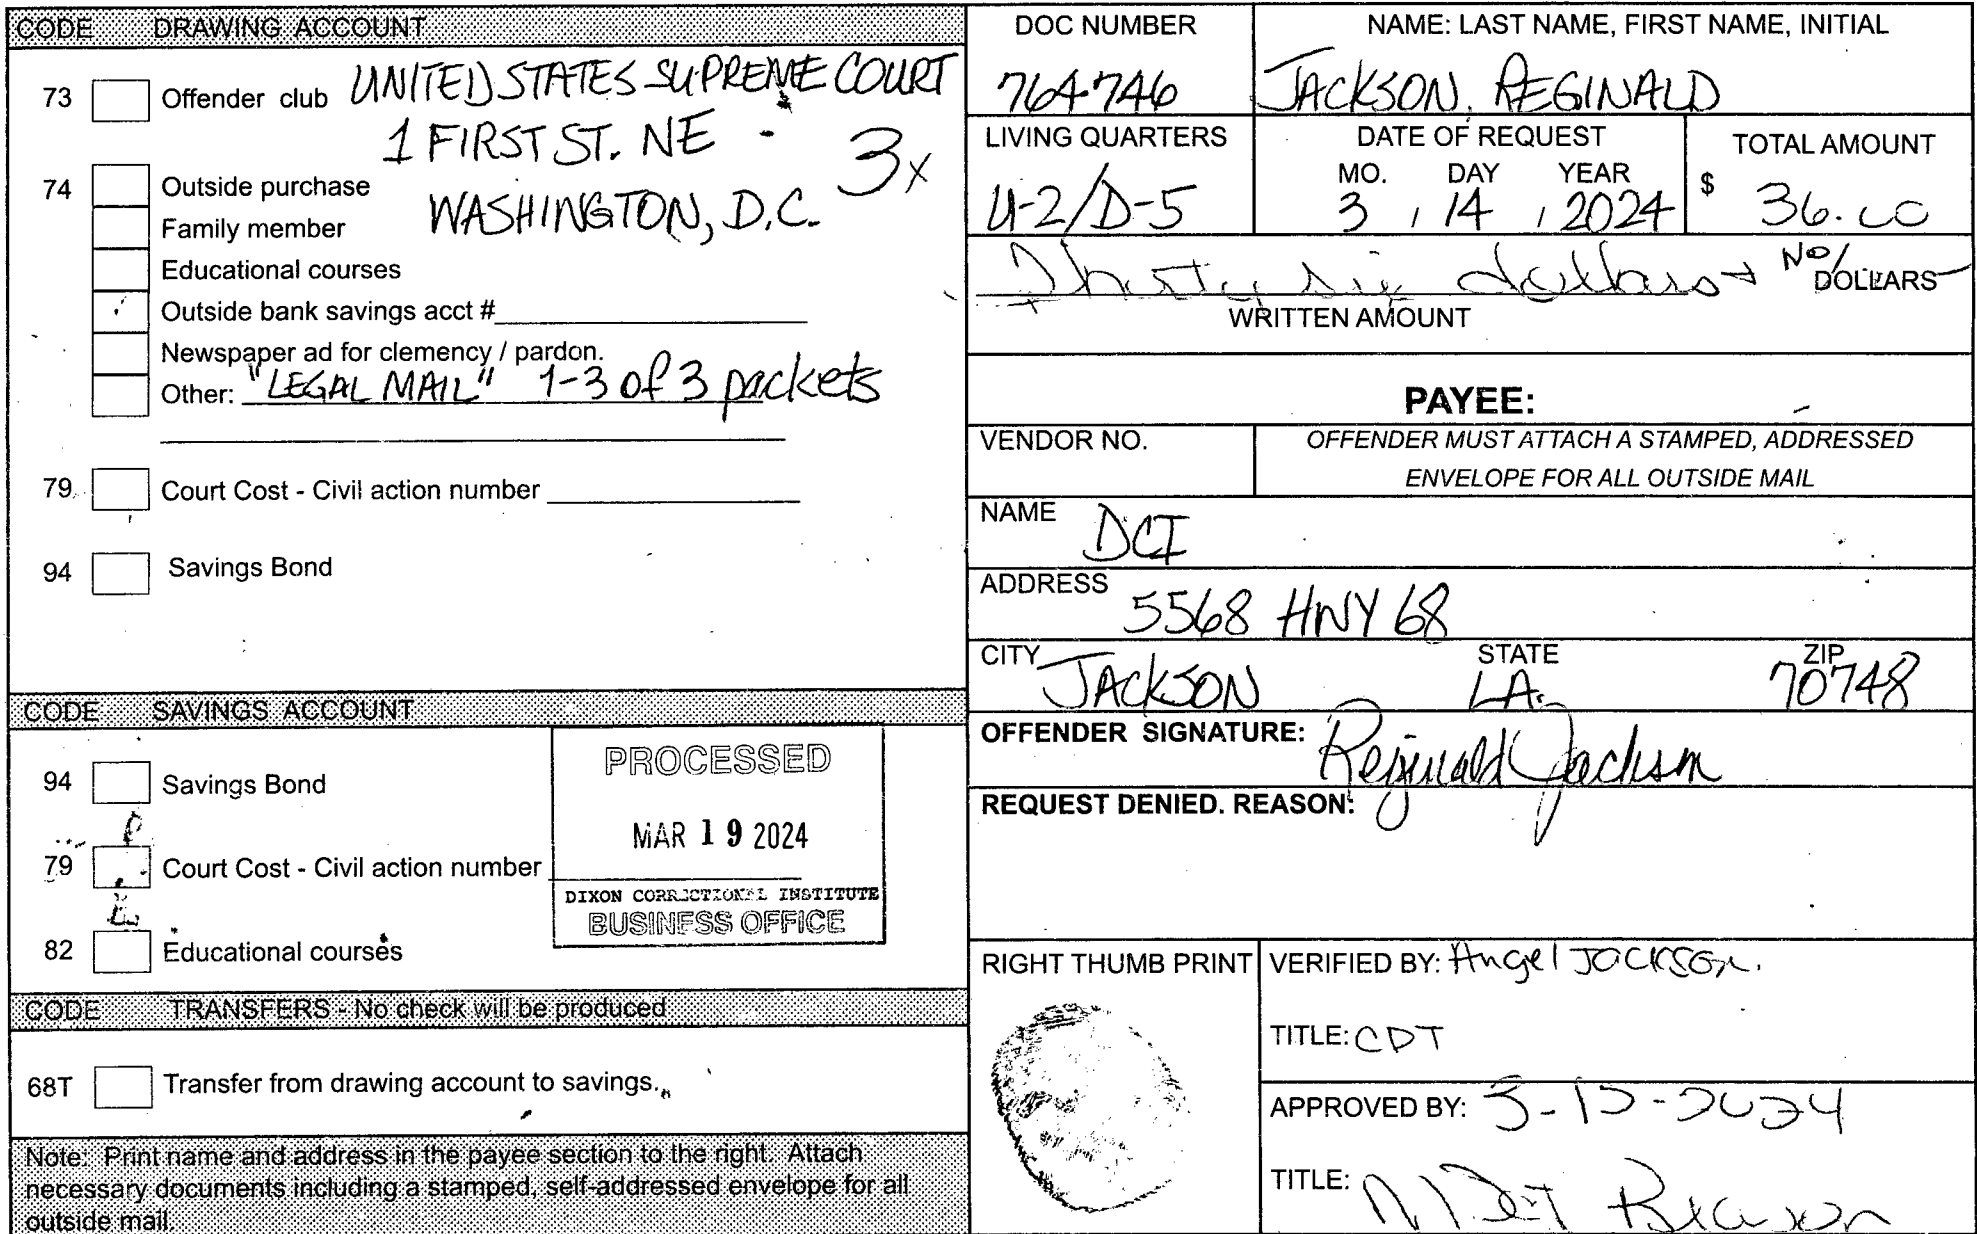 CODE DRAWING ACCOUNT
73 Offender club UNITED STATES SUPREME COURT
1 FIRST ST. NE - 3x
74 Outside purchase
WASHINGTON, D.C.
Family member
Educational courses
Outside bank savings acct #
Newspaper ad for clemency / pardon.
Other: "LEGAL MAIL" 1-3 of 3 packets
79 Court Cost - Civil action number
94 Savings Bond
CODE SAVINGS ACCOUNT
94 Savings Bond
79 Court Cost - Civil action number
82 Educational courses
PROCESSED
MAR 19 2024
DIXON CORRECTIONAL INSTITUTE
BUSINESS OFFICE
CODE TRANSFERS - No check will be produced
68T Transfer from drawing account to savings.
Note: Print name and address in the payee section to the right. Attach
necessary documents including a stamped, self-addressed envelope for all
outside mail.
DOC NUMBER
764746
NAME: LAST NAME, FIRST NAME, INITIAL
JACKSON, REGINALD
LIVING QUARTERS
U-2/D-5
DATE OF REQUEST
MO. DAY YEAR
3 , 14 , 2024
TOTAL AMOUNT
$ 36.00
Thirty six dollars + NO/ DOLLARS
WRITTEN AMOUNT
PAYEE:
VENDOR NO.
OFFENDER MUST ATTACH A STAMPED, ADDRESSED
ENVELOPE FOR ALL OUTSIDE MAIL
NAME DCI
ADDRESS 5568 HWY 68
CITY JACKSON STATE LA. ZIP 70748
OFFENDER SIGNATURE: Reginald Jackson
REQUEST DENIED. REASON:
RIGHT THUMB PRINT
VERIFIED BY: Angel Jackson.
TITLE: CDT
APPROVED BY:
TITLE: